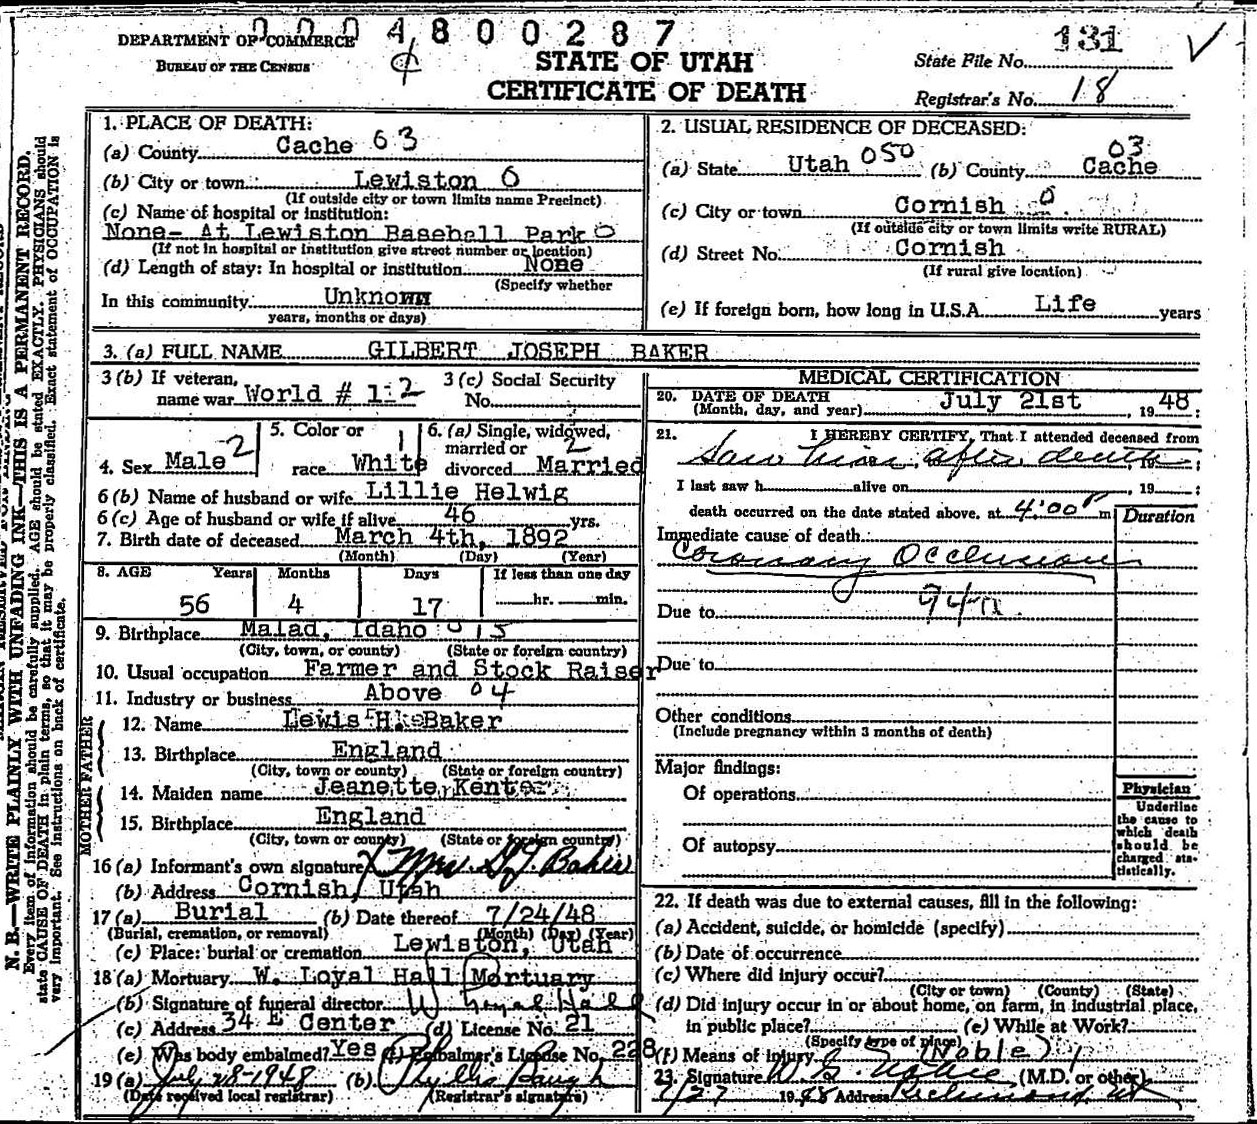 0004800287
DEPARTMENT OF COMMERCE
BUREAU OF THE CENSUS
¢
STATE OF UTAH
CERTIFICATE OF DEATH
State File No. 131
Registrar's No. 18
1. PLACE OF DEATH:
(a) County Cache 63
(b) City or town Lewiston 0
(If outside city or town limits name Precinct)
(c) Name of hospital or institution:
None- At Lewiston Baseball Park 0
(If not in hospital or institution give street number or location)
(d) Length of stay: In hospital or institution None
(Specify whether
In this community Unknown
years, months or days)
2. USUAL RESIDENCE OF DECEASED:
(a) State Utah 050 (b) County Cache 03
(c) City or town Cornish 0
(If outside city or town limits write RURAL)
(d) Street No. Cornish
(If rural give location)
(e) If foreign born, how long in U.S.A. Life years
3. (a) FULL NAME GILBERT JOSEPH BAKER
3 (b) If veteran, name war World # 1-2
3 (c) Social Security No.
4. Sex Male 2
5. Color or race White 1
6. (a) Single, widowed, married or divorced Married 2
6 (b) Name of husband or wife Lillie Helwig
6 (c) Age of husband or wife if alive 46 yrs.
7. Birth date of deceased March 4th, 1892
(Month) (Day) (Year)
8. AGE Years Months Days If less than one day
56 4 17 hr. min.
9. Birthplace Malad, Idaho 015
(City, town, or county) (State or foreign country)
10. Usual occupation Farmer and Stock Raiser
11. Industry or business Above 04
FATHER
12. Name Lewis H. Baker
13. Birthplace England
(City, town or county) (State or foreign country)
MOTHER
14. Maiden name Jeanette Kenter
15. Birthplace England
(City, town or county) (State or foreign country)
16 (a) Informant's own signature X Mrs. G. J. Baker
(b) Address Cornish, Utah
17 (a) Burial (b) Date thereof 7/24/48
(Burial, cremation, or removal) (Month) (Day) (Year)
(c) Place: burial or cremation Lewiston, Utah
18 (a) Mortuary W. Loyal Hall Mortuary
(b) Signature of funeral director W Loyal Hall
(c) Address 34 E Center (d) License No. 21
(e) Was body embalmed? Yes (f) Embalmer's License No. 228
19 (a) July 28-1948 (b) Phyllis Baugh
(Date received local registrar) (Registrar's signature)
MEDICAL CERTIFICATION
20. DATE OF DEATH
(Month, day, and year) July 21st, 1948;
21. I HEREBY CERTIFY, That I attended deceased from
Saw him after death, 19 ;
I last saw h alive on , 19 ;
death occurred on the date stated above, at 4:00 P m
Duration
Immediate cause of death
Coronary Occlusion
94a
Due to
Due to
Other conditions
(Include pregnancy within 3 months of death)
Major findings:
Of operations
Of autopsy
Physician
Underline
the cause to
which death
should be
charged sta-
tistically.
22. If death was due to external causes, fill in the following:
(a) Accident, suicide, or homicide (specify)
(b) Date of occurrence
(c) Where did injury occur?
(City or town) (County) (State)
(d) Did injury occur in or about home, on farm, in industrial place,
in public place? (e) While at Work?
(Specify type of place)
(f) Means of injury (Noble)
23. Signature W. G. Noble (M.D. or other)
7/27 1948 Address Richmond Ut
N. B.—WRITE PLAINLY WITH UNFADING INK—THIS IS A PERMANENT RECORD.
Every item of information should be carefully supplied. AGE should be stated EXACTLY. PHYSICIANS should
state CAUSE OF DEATH in plain terms, so that it may be properly classified. Exact statement of OCCUPATION is
very important. See instructions on back of certificate.